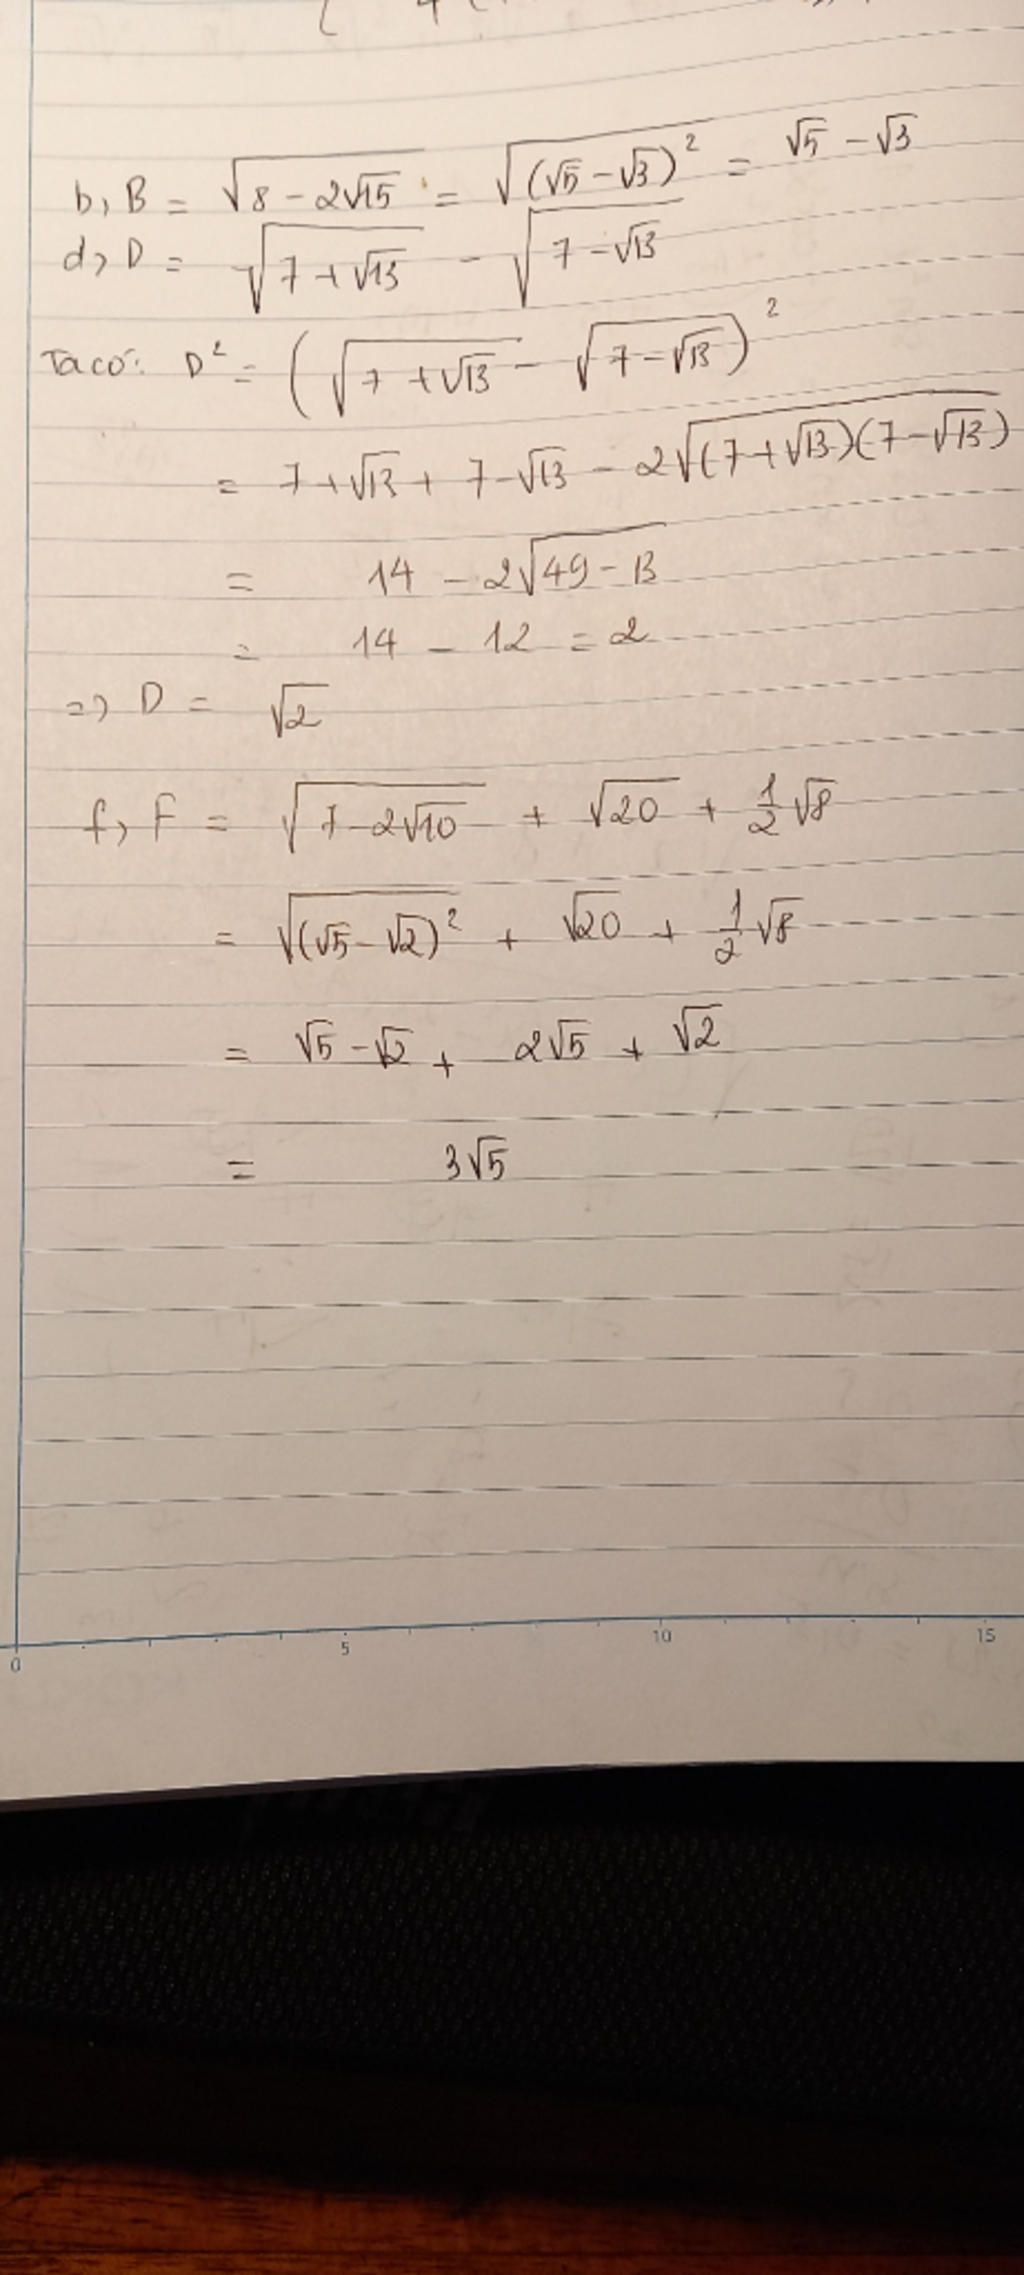 b, B = √(8 - 2√15) = √((√5 - √3)²) = √5 - √3
d, D = √(7 + √13) - √(7 - √13)
Ta có: D² = (√(7 + √13) - √(7 - √13))²
= 7 + √13 + 7 - √13 - 2√((7 + √13)(7 - √13))
= 14 - 2√(49 - 13)
= 14 - 12 = 2
=> D = √2
f, F = √(7 - 2√10) + √20 + 1/2 √8
= √((√5 - √2)²) + √20 + 1/2 √8
= √5 - √2 + 2√5 + √2
= 3√5
0 5 10 15